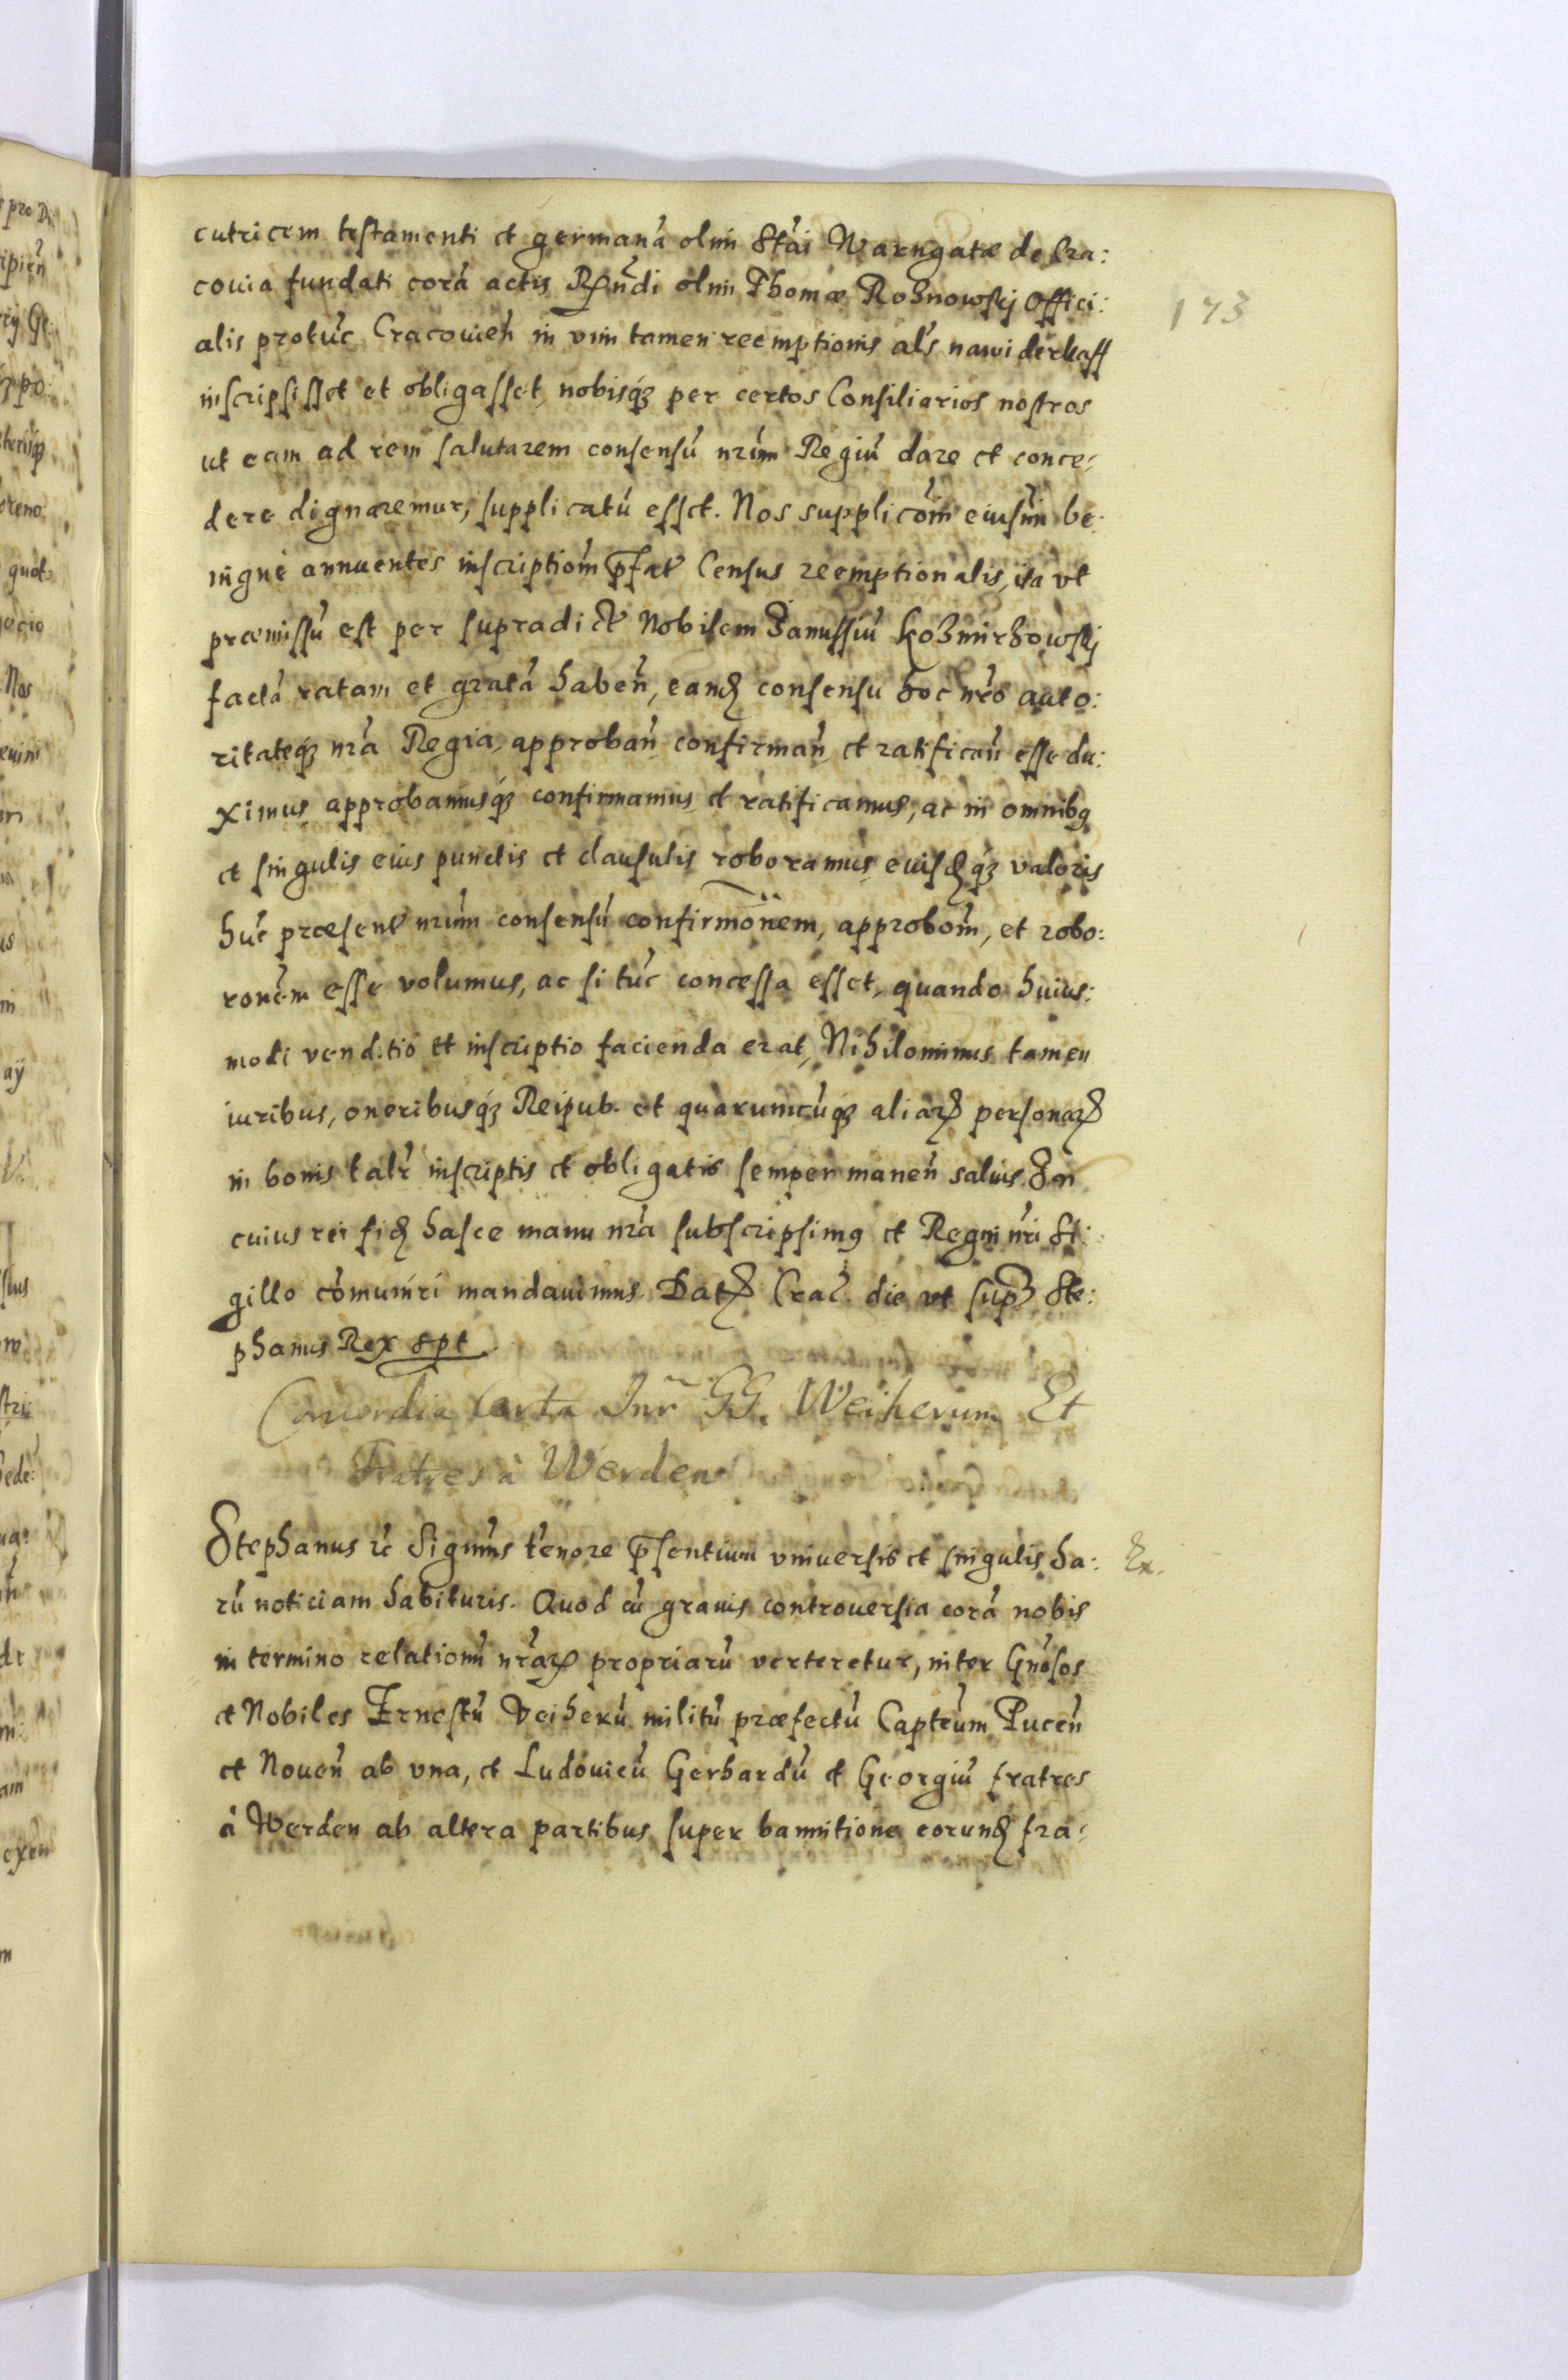 cutricem testamenti et germanā olim Stāi Warngatæ de Cra:
couia fundati corā actis Rṇdi olim Thomæ Roznowskj Offici:
alis protūc Cracouień in vim tamen reemptionis als nawiderkaff
inscripsisset et obligasset, nobisq́ꝫ per certos Consiliarios nostros
ut eam ad rem salutarem consensū nrūm Regiū dare et conce:
dere dignaremur, supplicatū esset. Nos supplicōm̄ eiusm̄i be:
nigne annuentes inscriptiom̄ p̄fat Census reemptionalis, ita vt
præmissū est per supradict Nobilem Janussiū Kozmirzowskj
factā ratam et gratā habeń, eandꝫ consensu hoc nrō auto:
ritateq́ꝫ nrā Regia, approbań confirmań et ratificań esse du:
ximus, approbamusq́ꝫ confirmamus, et ratificamus, ac in omnibꝰ
et singulis eius punctis et clausulis roboramus, eiusdꝫq́ꝫ valoris
hūc præsent nrūm consensū confirmōnem, approbōm̄, et robo:
ronēm esse volumus, ac si tūc concessa esset, quando huius:
modi venditio et inscriptio facienda erat, Nihilominus tamen
iuribus, oneribusq́ꝫ Reipub. et quarumcūq́ꝫ aliarꝝ personarꝝ
in bonis talr inscriptis et obligatis semper maneń saluis. In
cuius rei fidꝫ hasce manu nrā subscripsimꝰ et Regni nrī Si:
gillo cōmuniri mandauimus. Datꝝ Crac̄. die vt supꝫ Ste:
phanus Rex spt
Concordia Certa Intr̄ GG. Weiherum Et
Fratres à Werden
Stephanus ꝛc Signm̄s tenore p̄sentium vniuersis et singulis ha:
rū noticiam habituris. Quod cū grauis controuersia corā nobis
in termino relationū nrārꝝ propriarū verteretur, inter Gnōsos
et Nobiles Ernestū Veiherū militū præfectū Captēum Puceń
et Noueń ab vna, et Ludouicū Gerhardū et Georgiū fratres
à Werden ab altera partibus super bannitione eorundꝫ fra:
173
Ex.